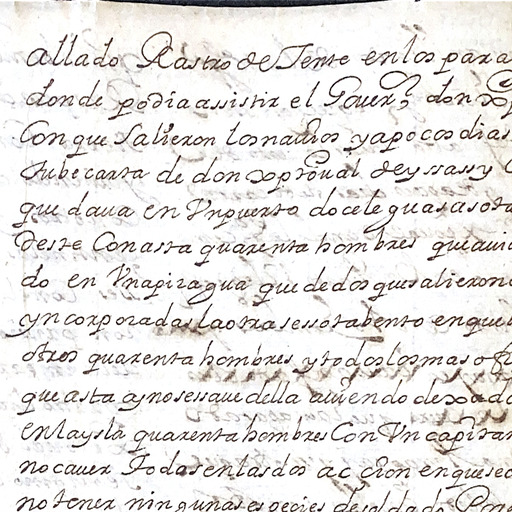 allado Rastro de Jente en los para
donde podia assistir el Gouer.r don xp
Con que Salieron los nauios y a pocos dias
tube carta de don xptoual de yssassy
que daua en Vn puerto doce leguas a sota
deste Con asta quarenta hombres que auia
do en Vna piragua que de dos que salieron
yncorporadas la otra se ssotabento en que
otros quarenta hombres y todos los mas ofi
que asta ay no se ssaue della auiendo dexado
en la ysla quarenta hombres Con Vn capitan
no cauer todas en las dos
no tener ningunas especies de soldado